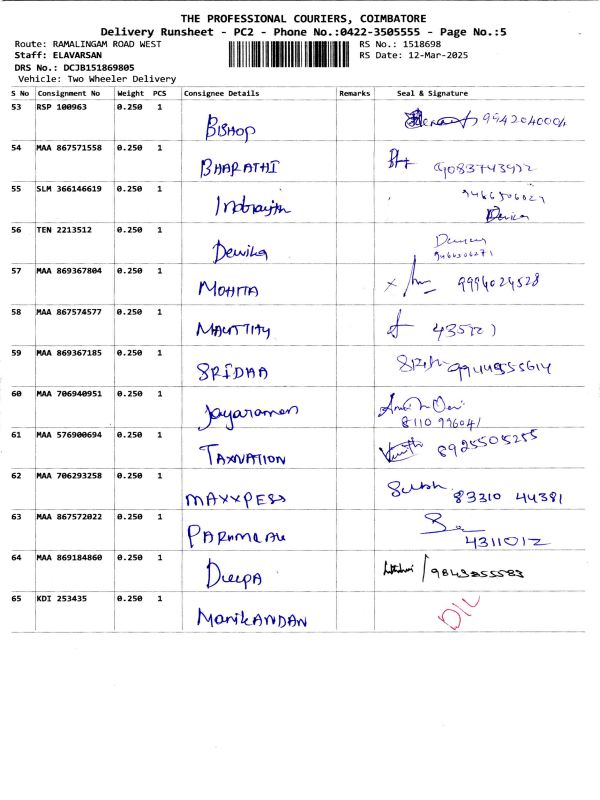 THE PROFESSIONAL COURIERS, COIMBATORE
Delivery Runsheet - PC2 - Phone No.:0422-3505555 - Page No.:5
Route: RAMALINGAM ROAD WEST RS No.: 1518698
Staff: ELAVARSAN RS Date: 12-Mar-2025
DRS No.: DCJB151869805
Vehicle: Two Wheeler Delivery
S No Consignment No Weight PCS Consignee Details Remarks Seal & Signature
53 RSP 100963 0.250 1 BISHOP 9942040004
54 MAA 867571558 0.250 1 BHARATHI
55 SLM 366146619 0.250 1
56 TEN 2213512 0.250 1 Dewika
57 MAA 869367804 0.250 1 MOHITA 9994024528
58 MAA 867574577 0.250 1
59 MAA 869367185 0.250 1 SRIDHA 9944955614
60 MAA 706940951 0.250 1 Jayaramen
8110 99604/
61 MAA 576900694 0.250 1 TAXNATION 8925505255
62 MAA 706293258 0.250 1 MAXXPESS 83310 44381
63 MAA 867572022 0.250 1 4311012
64 MAA 869184860 0.250 1 Deepa 9843555583
65 KDI 253435 0.250 1 ManikANDAN D/L